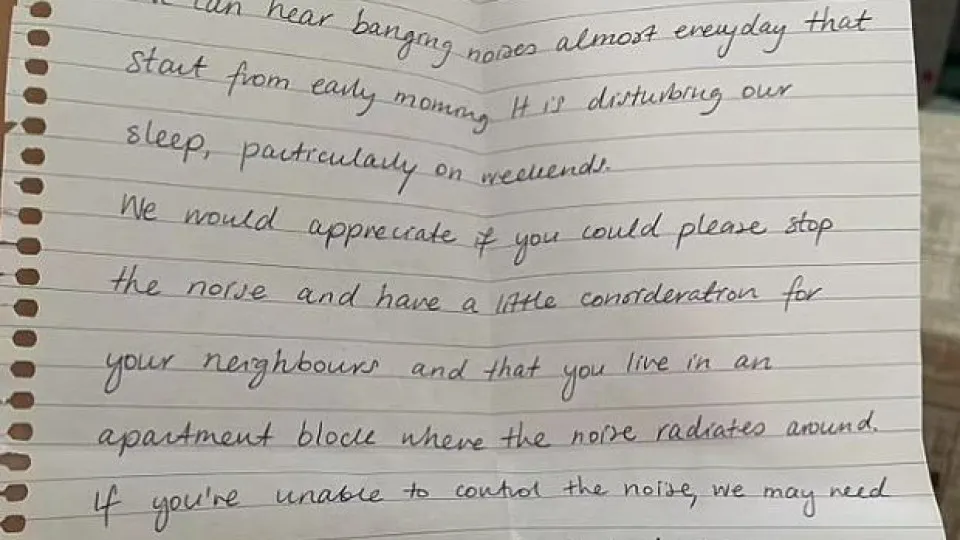 can hear banging noises almost everyday that
start from early morning It is disturbing our
sleep, particularly on weekends.
We would appreciate if you could please stop
the noise and have a little consideration for
your neighbours and that you live in an
apartment block where the noise radiates around.
If you're unable to control the noise, we may need